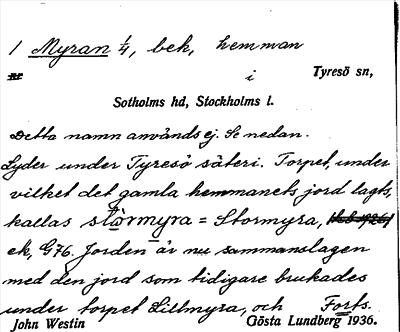 1 Myran 1/4, bek, hemman
nr i Tyresö sn,
Sotholms hd, Stockholms l.
Detta namn användes ej. Se nedan.
Lyder under Tyresö säteri. Torpet, under
vilket det gamla hemmanets jord lagts,
kallas stòrmyra = Stormyra,
ek, G76. Jorden är nu sammanslagen
med den jord som tidigare brukades
under torpet Lillmyra, och Forts.
John Westin Gösta Lundberg 1936.